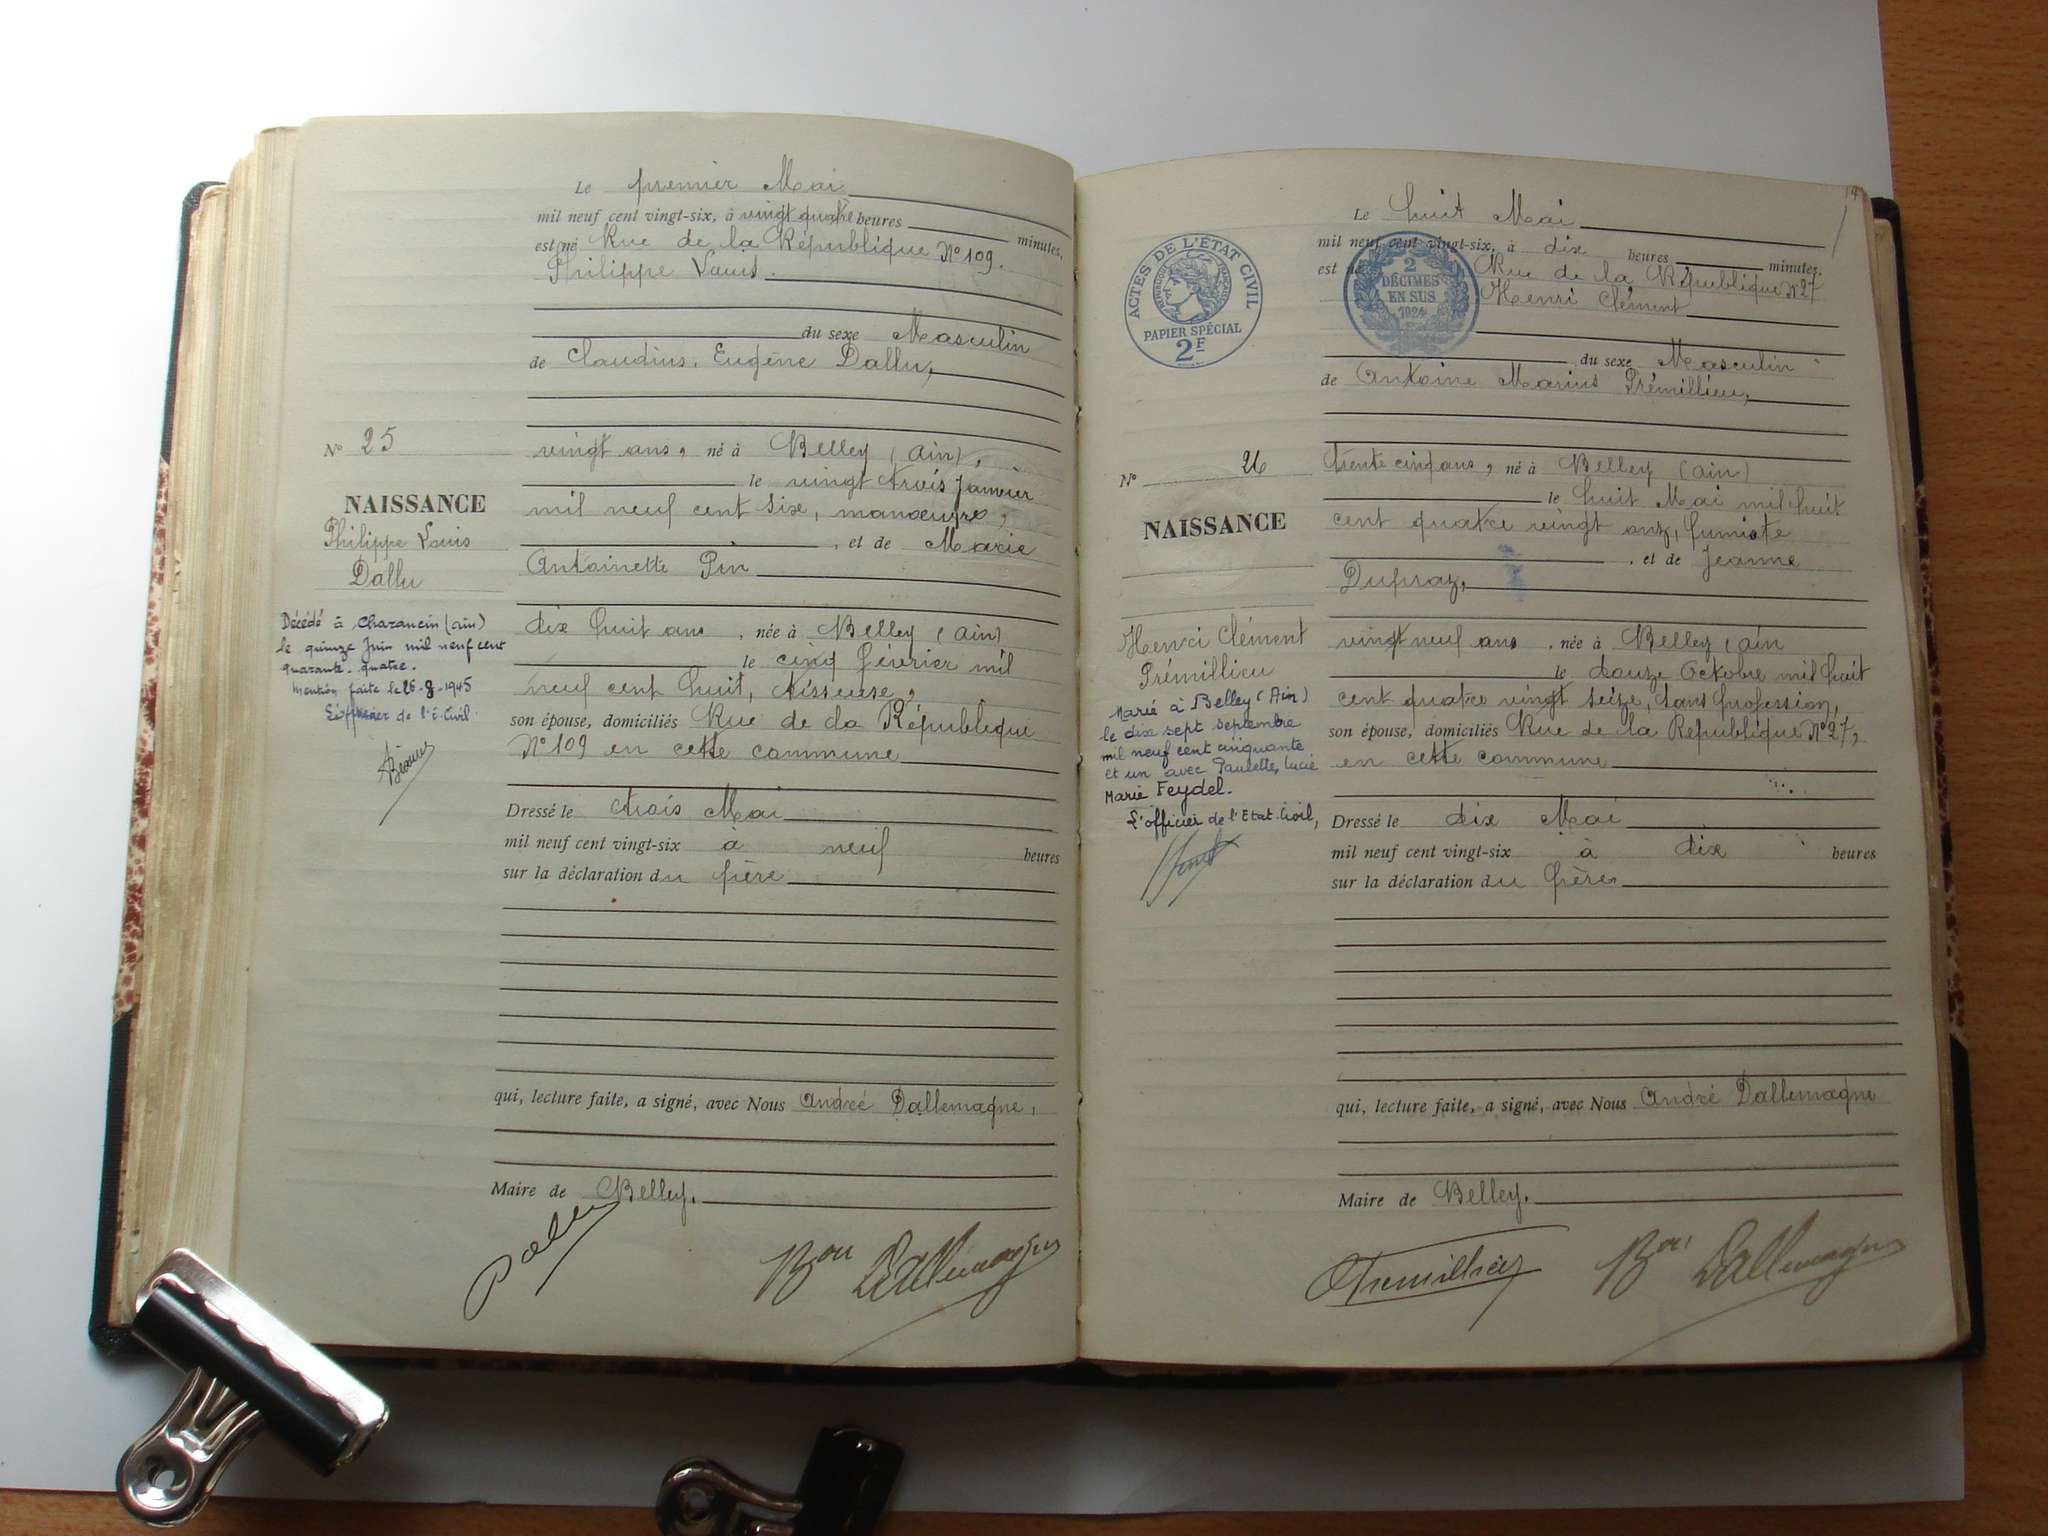 Le premier Mai
mil neuf cent vingt-six, à vingt quatre heures minutes,
est né Rue de la République N° 109.
Philippe Louis.
du sexe Masculin
de Claudius, Eugène Dallu,
N° 25
vingt ans, né à Belley (Ain),
le vingt trois Janvier
NAISSANCE
mil neuf cent six, manœuvre,
Philippe Louis
Dallu
, et de Marie
Antoinette Pin
Décédé à Chazancin (Ain)
le quinze Juin mil neuf cent
quarante quatre.
Mention faite le 26-8-1945
L'officier de l'E-Civil.
dix huit ans, née à Belley (Ain)
le cinq Février mil
neuf cent huit, tisseuse,
son épouse, domiciliés Rue de la République
N° 109 en cette commune
Dressé le trois Mai
mil neuf cent vingt-six à neuf heures
sur la déclaration du père
qui, lecture faite, a signé, avec Nous André Dallemagne,
Maire de Belley.
Dallu
Bon Dallemagne
Le huit Mai
mil neuf cent vingt-six, à dix heures minutes.
est né Rue de la République N° 27
Henri Clément
ACTES DE L'ÉTAT CIVIL
RÉPUBLIQUE FRANÇAISE
PAPIER SPÉCIAL
2F
2
DÉCIMES
EN SUS
1924
du sexe Masculin
de Antoine Marius Prémillieu,
N° 26
trente cinq ans, né à Belley (Ain)
le huit Mai mil huit
NAISSANCE
cent quatre vingt onz, fumiste
, et de Jeanne
Dupraz,
Henri Clément
Prémillieu
Marié à Belley (Ain)
le dix sept septembre
mil neuf cent cinquante
et un avec Paulette, Lucie
Marie Feydel.
L'officier de l'Etat-Civil,
vingt neuf ans, née à Belley (Ain
le douze Octobre mil huit
cent quatre vingt seize, sans profession,
son épouse, domiciliés Rue de la République N° 27,
en cette commune
Dressé le dix Mai
mil neuf cent vingt-six à dix heures
sur la déclaration du père
qui, lecture faite, a signé, avec Nous André Dallemagne
Maire de Belley.
Prémillieu
Bon Dallemagne